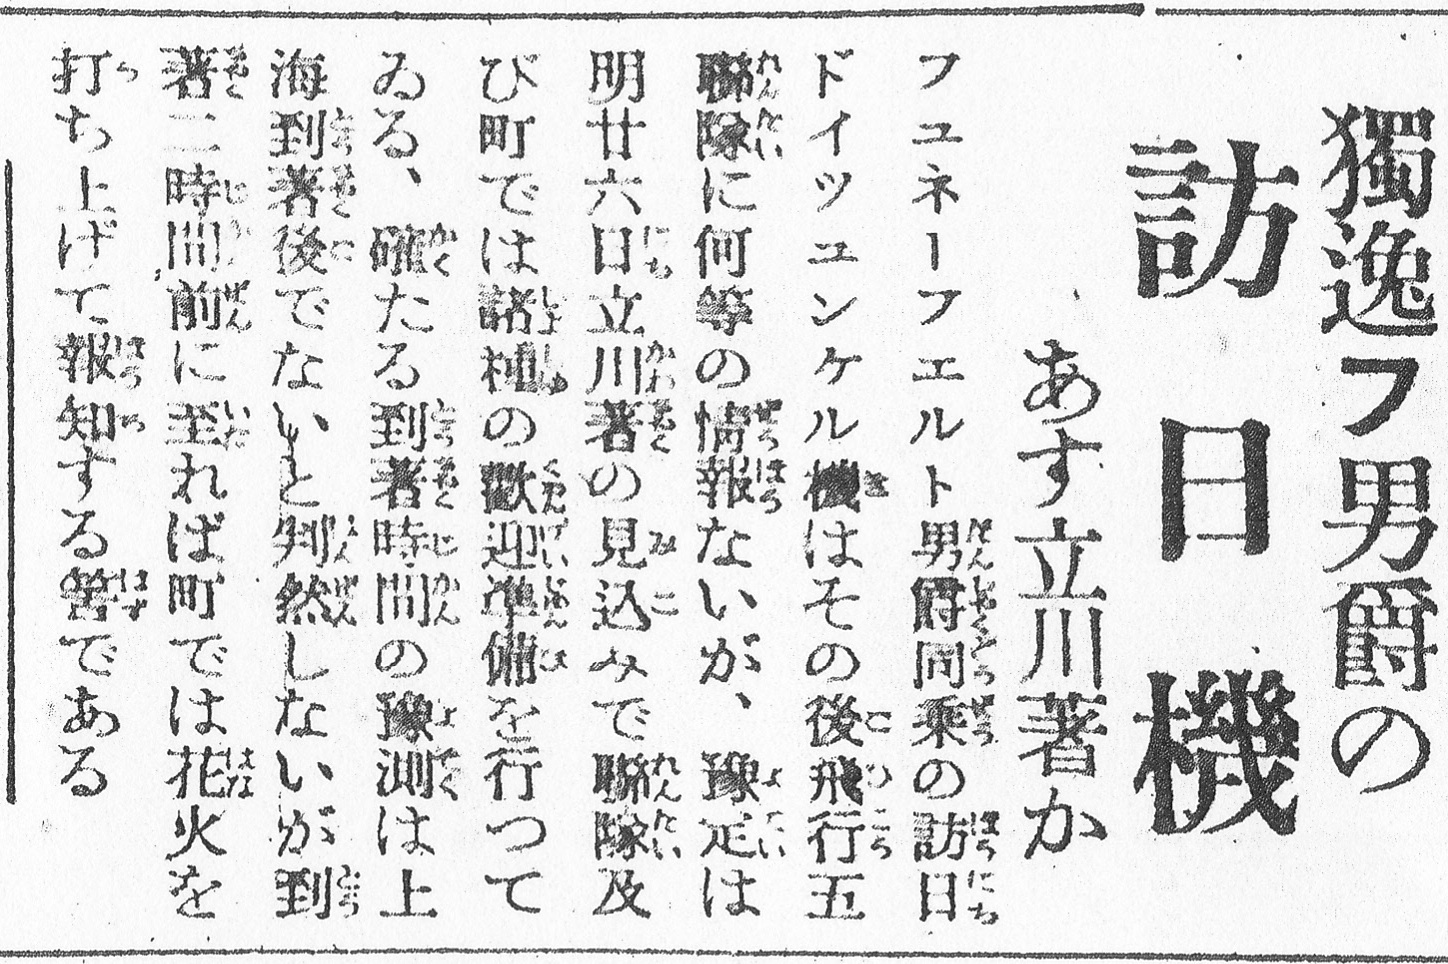 獨逸フ男爵の
訪日機
あす立川著か
フユネーフエルト男爵同乘の訪日
ドイツユンケル機はその後飛行五
聯隊に何等の情報ないが、豫定は
明廿六日立川著の見込みで聯隊及
び町では諸種の歡迎準備を行つて
ゐる、確たる到著時間の豫測は上
海到著後でないと判然しないが到
著二時間前に至れば町では花火を
打ち上げて報知する筈である